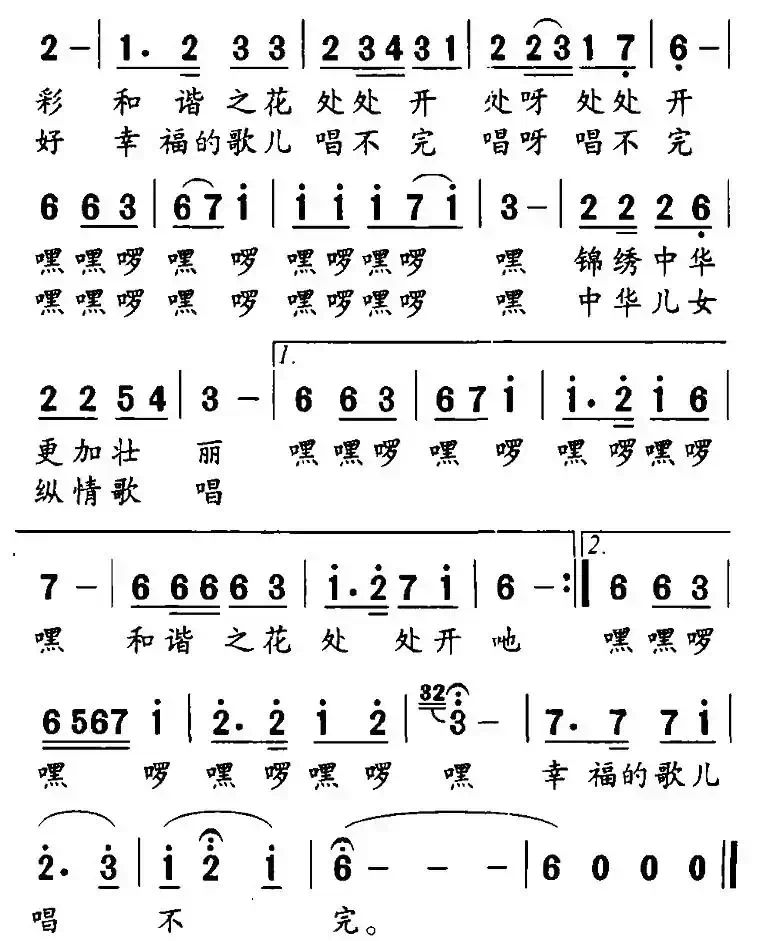 2 – | 1. 2 3 3 | 2 3 4 3 1 | 2 2 3 1 7 | 6 – |
彩 和谐之花 处处开 处呀处处开
好 幸福的歌儿 唱不完 唱呀唱不完
6 6 3 | 6 7 i | i i i 7 i | 3 – | 2 2 2 6 |
嘿嘿啰 嘿 啰 嘿啰嘿啰 嘿 锦绣中华
嘿嘿啰 嘿 啰 嘿啰嘿啰 嘿 中华儿女
1.
2 2 5 4 | 3 – | 6 6 3 | 6 7 i | i. 2 i 6 |
更加壮 丽 嘿嘿啰 嘿 啰 嘿 啰嘿啰
纵情歌 唱
2.
7 – | 6 6 6 6 3 | i. 2 7 i | 6 – :| 6 6 3 |
嘿 和谐 之花 处 处开 吔 嘿嘿啰
32
6 5 6 7 i | 2. 2 i 2 | 3 – | 7. 7 7 i |
嘿 啰 嘿 啰嘿 啰 嘿 幸 福的歌儿
2. 3 | i 2 i | 6 – – – | 6 0 0 0 ||
唱 不 完。